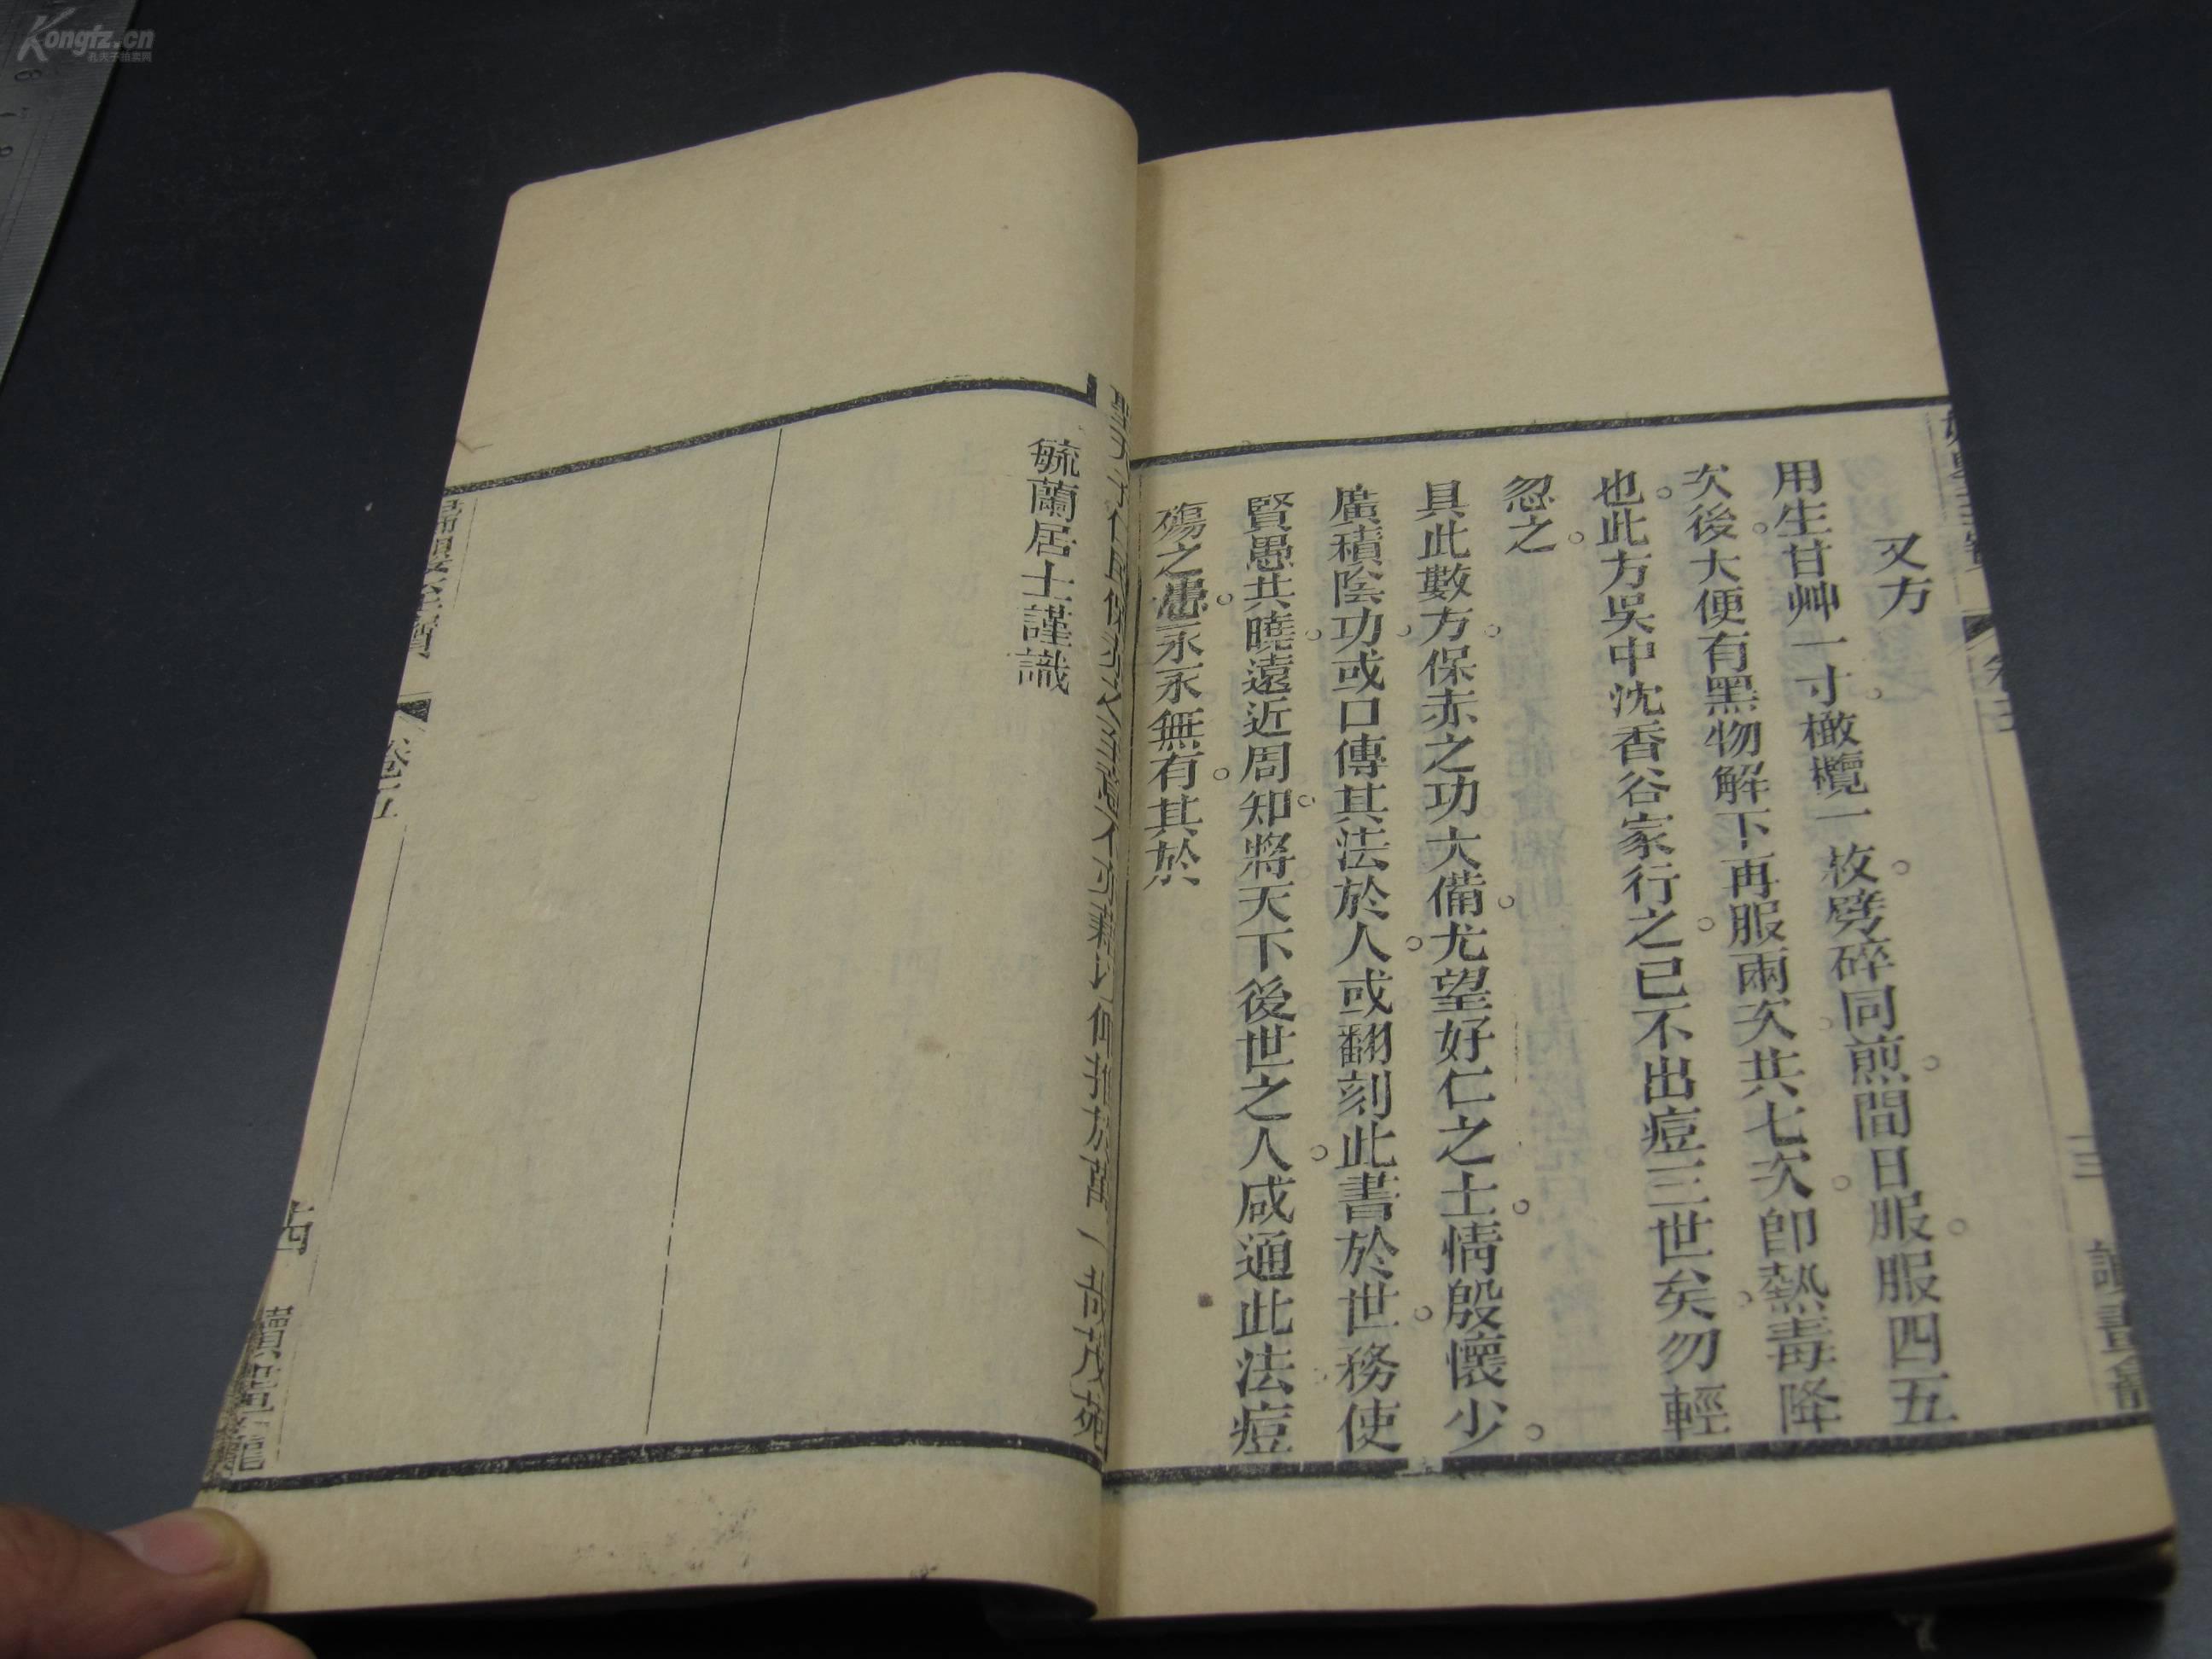 又方
用生甘艸一寸橄欖一枚劈碎同煎間日服服四五
次後大便有黑物解下再服兩次共七次卽熱毒降
也此方吳中沈香谷家行之已不出痘三世矣勿輕
忽之
具此數方保赤之功大備尤望好仁之士情殷懷少
廣積陰功或口傳其法於人或翻刻此書於世務使
賢愚共曉遠近周知將天下後世之人咸通此法痘
殤之患永永無有其於
毓蘭居士謹識
卷五
三
讀畫齋
Kongfz.cn
孔夫子拍卖网